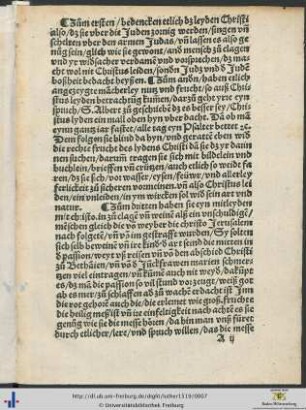 Zům ersten / bedencken etlich dz leyden Christi
also / dz sie vber die Juden zornig werden / singen vñ
schelten vber den armen Judas / vñ lassen es also ge
nůg sein / glich wie sie gewont / and mensch zů clagen
vnd yr widsacher verdamē vnd vorsprechen / dz mag
wol nit Christus leiden / sondn Judz vnd d̄ Judē
boßheit bedacht heyssen. Zům andn / haben etlich
angezeygte mācherley nutz vnd frucht / so auß Chris
stus leyden betrachtūg kumen / dar zů geht yrre eyn
spruch / S. Albert zů geschribē dz es besser sey / Chris
stus leyden ein mall oben hyn vber dacht. Dā ob mā
eynn gantz iar faste / alle tag eyn Psalter bette ꝛc.
Dem folgen sie blind da hyn / vnd geraten eben wid
die rechte frucht des lydens Christi dā sie dz yr dain
nen suchen / darum tragen sie sich mit bildelein vnd
buchlein / brieffen vñ creützen / auch etlich so weidt fa
ren / dz sie sich / vor wasser / eysen / feüwr / vnd allerley
ferlickeit zů sicheren vormeinen. vñ also Christus lei
den / ein vnleiden / in ym wircken sol wid sein art vnd
natur. Zům dritten haben sie eyn mitleyden
mit christo. in zů clagē vñ weinē alß ein vnschuldigē /
menschen gleich die vō weyber die christo Jerusalem
nach folgetē / vñ vō im gestrafft wurden / Sy solten
sich selb beweinē vñ ire kind. Ď art seind die mitten in
d̄ passion / weyt vß reisen vñ vō den abschied Christi
zů Bethāien / vñ vō d̄ Jückfrawen marien schmer
zen viel eintragen / vñ kumē auch nit weyd / da kūpt
es / dz mā die passion so vil stund vorzeugt / weiß got
ab es mer / zů schlaffen ad zů wachē erdacht ist. Inn
die rot gehort auch die / die erlernet wie groß frucht
die heilig meß hat vñ ire einfeltigkeit nach achtē es sie
genůg wie sie die messe hōrē / da hin man vnß fūrt
durch etlicher / lere / vnd spruch willen / das die messe
A ij
http://dl.ub.uni-freiburg.de/diglit/luther1519/0007
© Universitätsbibliothek Freiburg
Baden-Württemberg